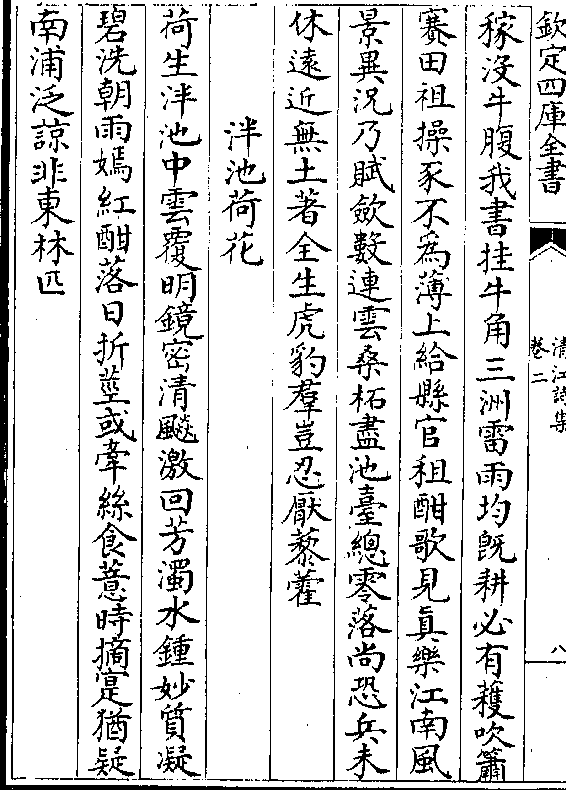 欽定四庫全書
清江詩集
卷二
八
稼没牛腹我書挂牛角三洲雷雨均既耕必有穫吹簫
賽田祖操豕不為薄上給縣官租酣歌見真樂江南風
景異況乃賦斂數連雲桑柘盡池臺總零落尚恐兵未
休遠近無土著全生虎豹羣豈忍厭藜藿
泮池荷花
荷生泮池中雲覆明鏡密清飈激回芳濁水鍾妙質凝
碧洗朝雨嫣紅酣落日折莖或牽絲食薏時摘寔猶疑
南浦泛諒非東林匹